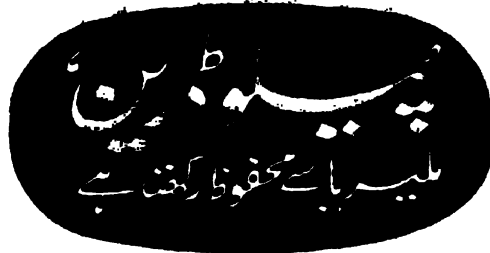 پیلوڈرین
ملیریا سے محفوظ رکھتا ہے